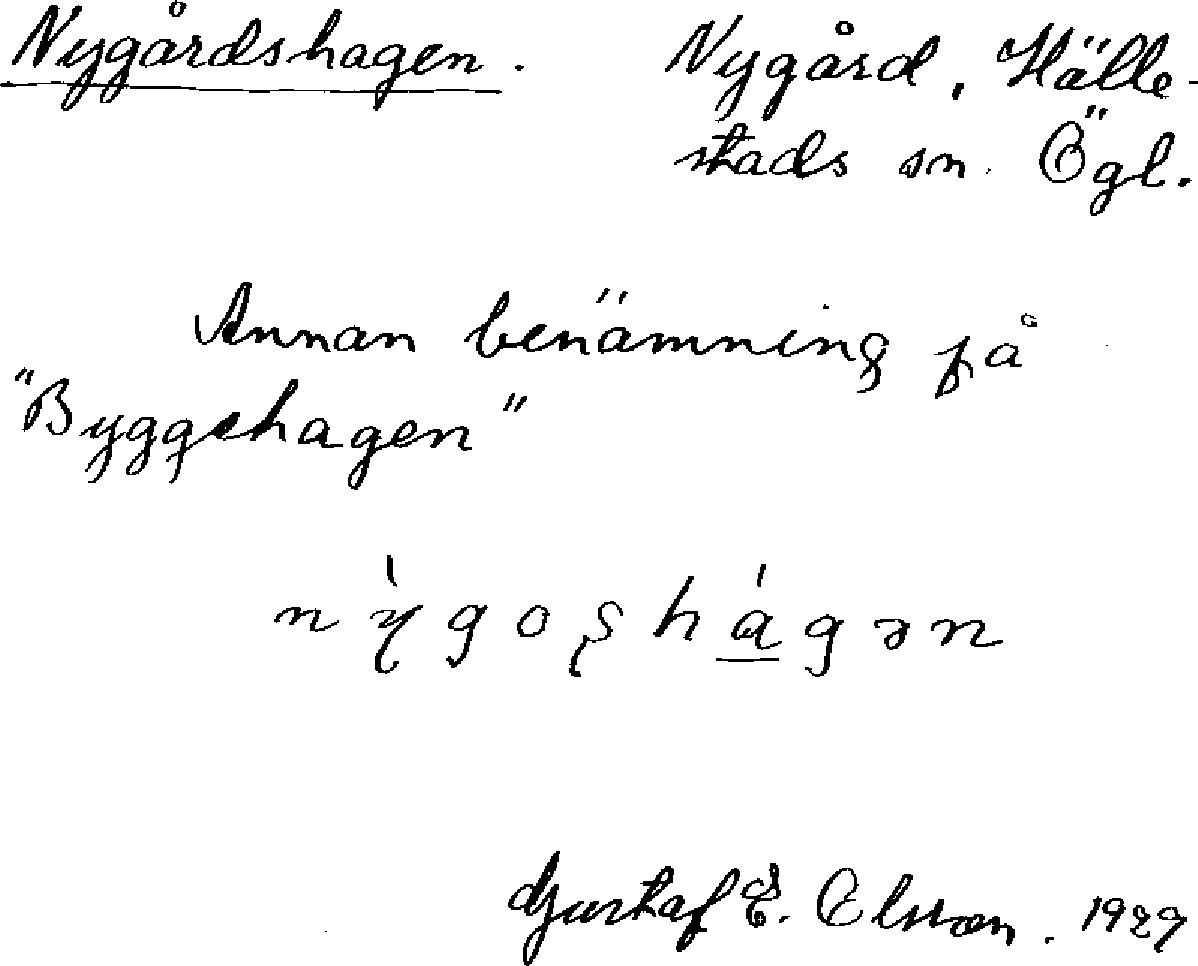 Nygårdshagen. Nygård, Hälle-
stads sn. Ögl.
Annan benämning på
"Byggshagen"
Gustaf E. Olsson. 1929